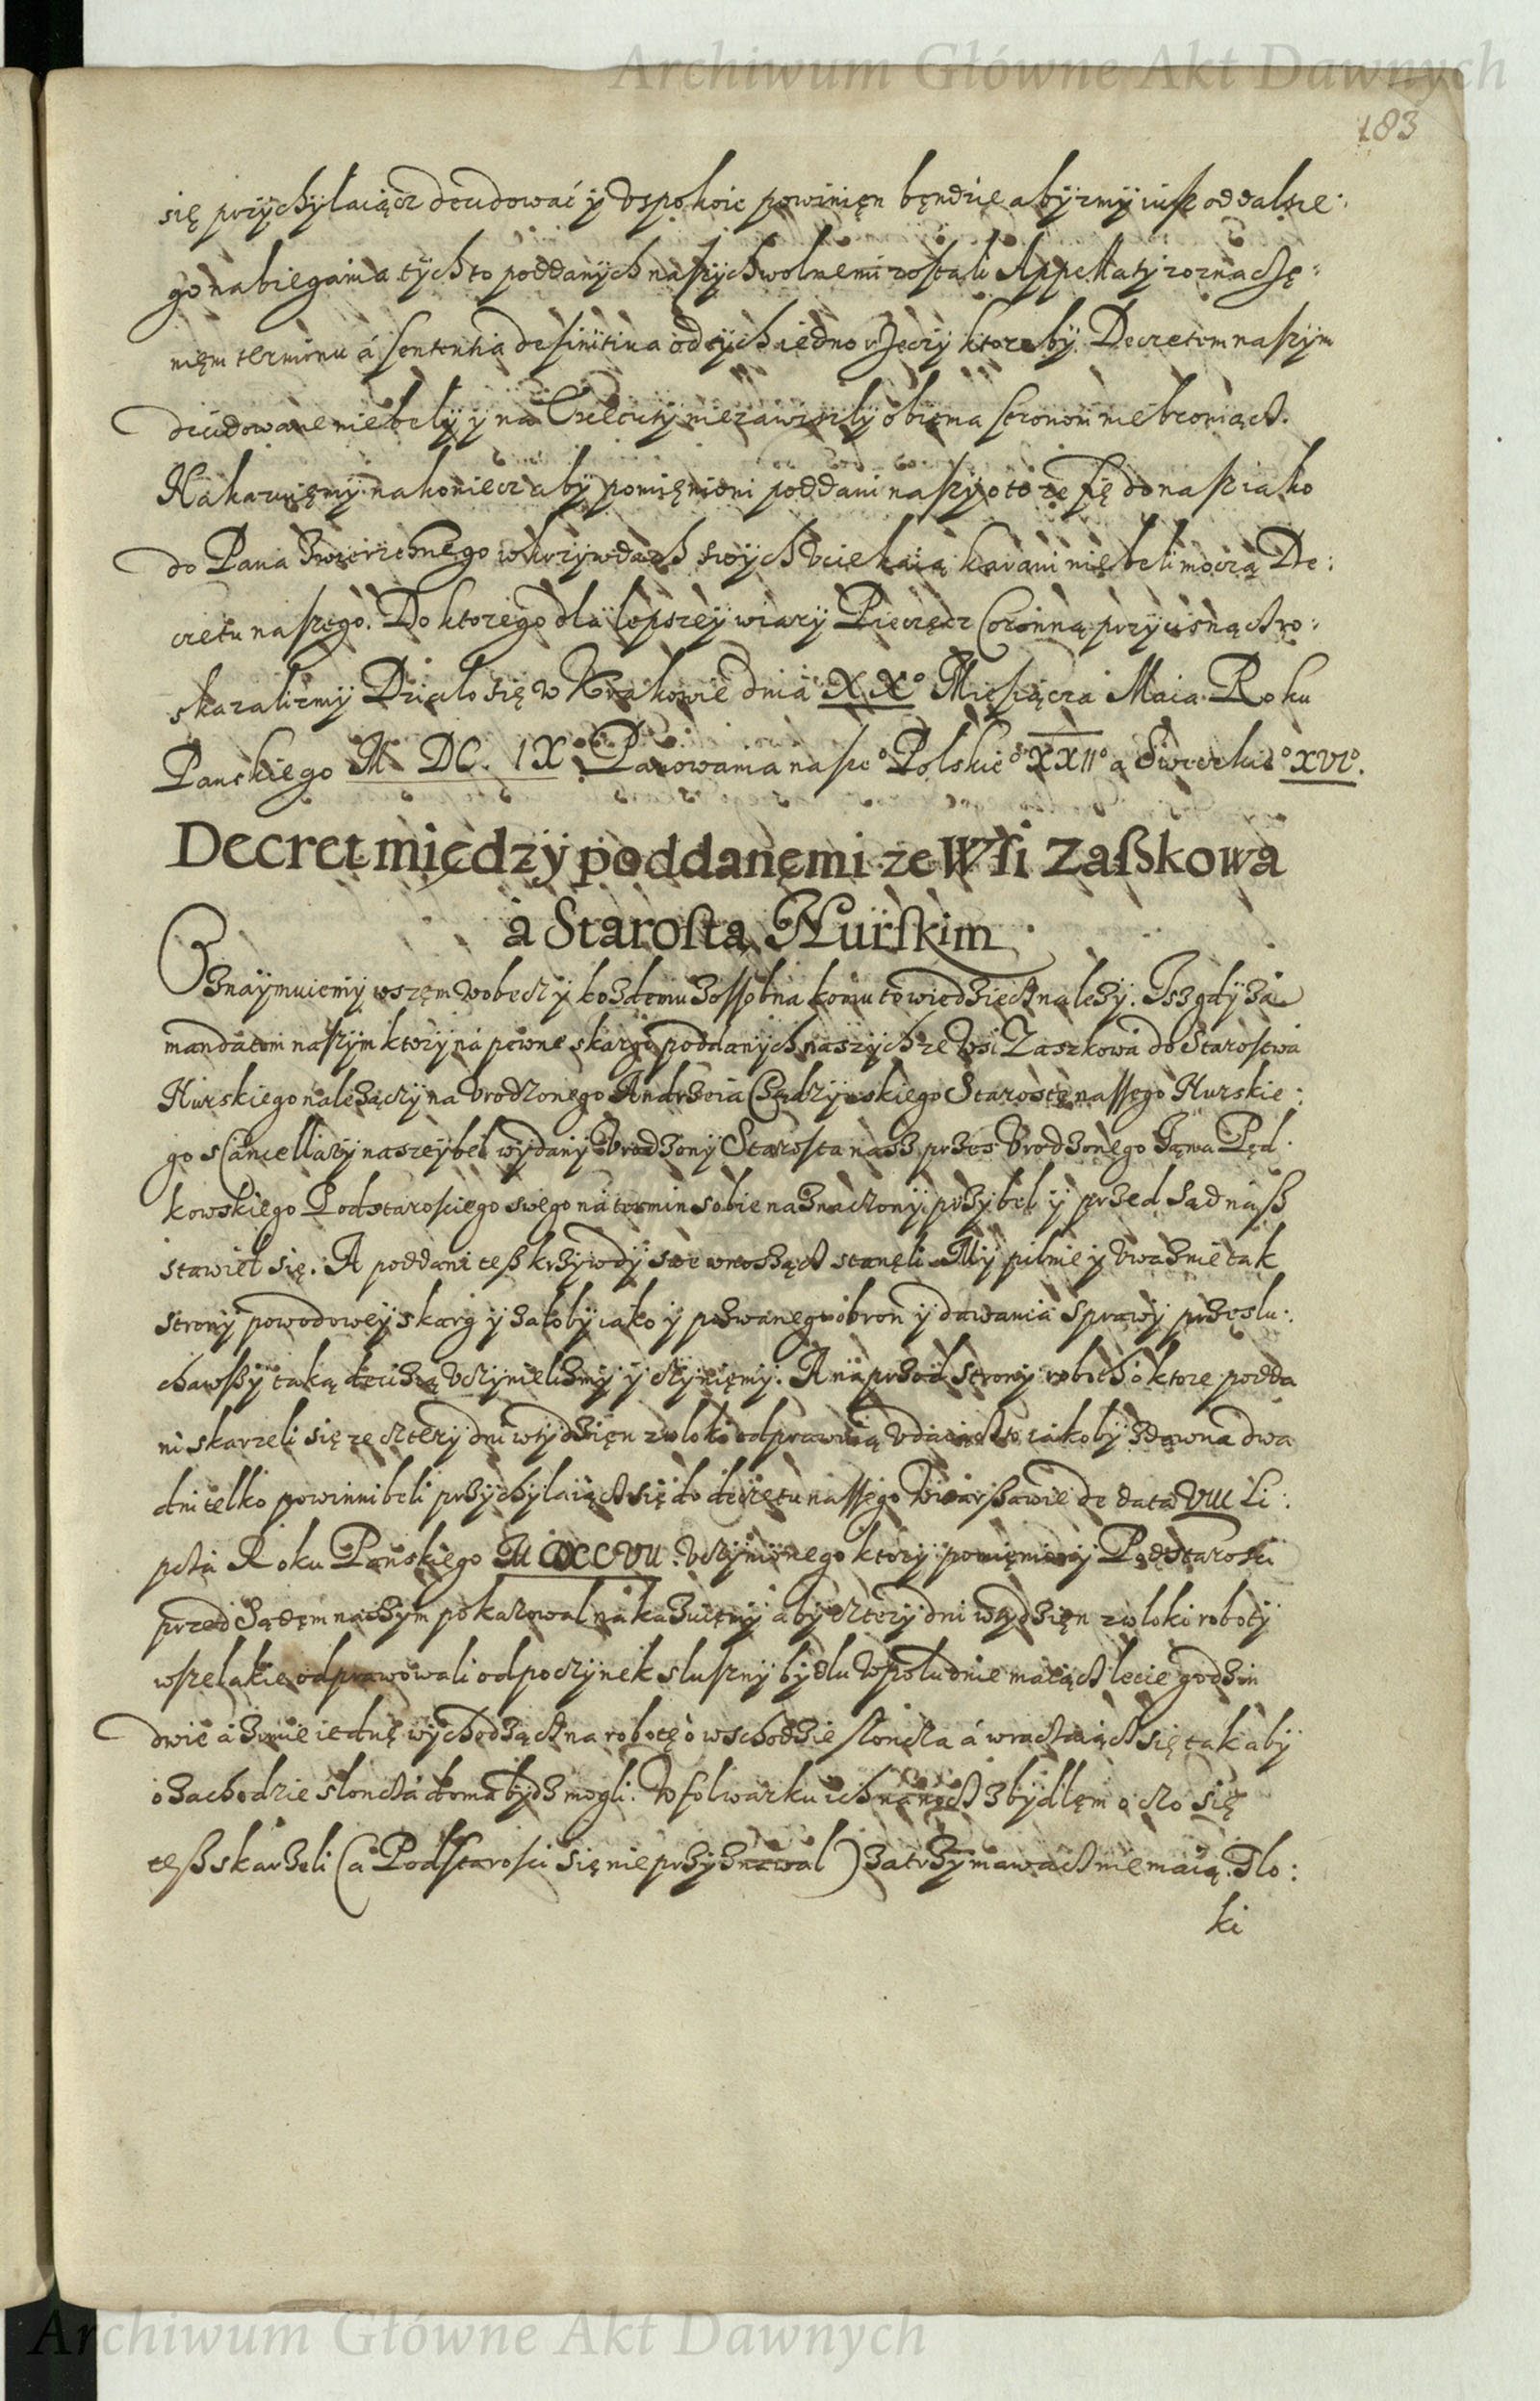 Archiwum Główne Akt Dawnych
183
się przychylaiącz decidować ÿ Vspokoic powinięn będzie abyzmy iusz od dalsze:
go nabiegania tych to poddanych naszych wolnemi zostali Appellaty z oznacże:
nięm terminu á sententia definitiua od tych iedno rzeczy ktoreby Decretem naszym
decidowane niebely y na Executÿ niezawisely obiema stronom niebroniącz.
Nakazuięmy nakoniecz aby pomięnieni poddani naszy o to ze się do nasz iako
do Pana zwierzchnego w krzywdach swych vciekaią karani nie beli moczą De:
cretu naszego. Do ktorego dla lepszey wiary Pieczęcz Coronną przycisnącz ro:
skazalizmy Działo się w Krakowie dnia XX° Miesiącza Maia Roku
Panskiego M. DC. IX Panowania nasze° Polskie° XXII° a Swedzkie° XVI°.
Decret między poddanęmi ze Wsi Zaszkowa
á Starostą Nurskim
Oznaymuiemy wszem wobecz y kozdemu zossobna komu to wiedziecz nalezy. Isz gdy za
mandatem naszym ktory na pewne skargi poddanych naszych ze Wsi Zaszkowa do Starostwa
Nurskiego nalezączy na Vrodzonego Andrzeia Starostę nassego Nurskie:
go s Cancellariy naszey bel wydany Vrodzony Starosta nasz przes Vrodzonego Jana Pęd
kowskiego Podstarosciego swego na termin sobie naznaczony przybel y przed Sąd nasz
stawiel się. A poddani tesz krzywdy swe wnoszącz stanęli. My pilnie y Vwaznie tak
strony powodowey skarg y załoby iako y pozwanego obron y dawania sprawy przeslu:
chawszy taką deciszią Vczynielizmy y czynięmy. A naprzod strony roboth o ktore podda
ni skarzeli się ze cztery dni w tydzięn z wloki odprawuią Vdaiącz to iakoby zdawna dwa
dni telko powinni beli przychylaiącz się do decretu nassego w Warszawie de data VIII Li:
pcza Roku Panskiego Vczynionego ktory pomięniony Podstarosci
przed Sądęm naszym pokazowal nakazuięmy aby cztery dni w tydzięn z wloki roboty
wszelakie odprawowali odpoczynek sluszny bydlu w poludnie maiącz lecie godzin
dwie á zimie iednę wychodzącz na robotę o wschodzie słoncza á wracaiącz się tak aby
o zachodzie słoncza doma bydz mogli. W folwarku ich na nocz z bydlęm o czo się
tesz skarzeli (a Podstarosci się nie przyznawal) zatrzymawacz nie maią. Tlo:
ki
Archiwum Główne Akt Dawnych